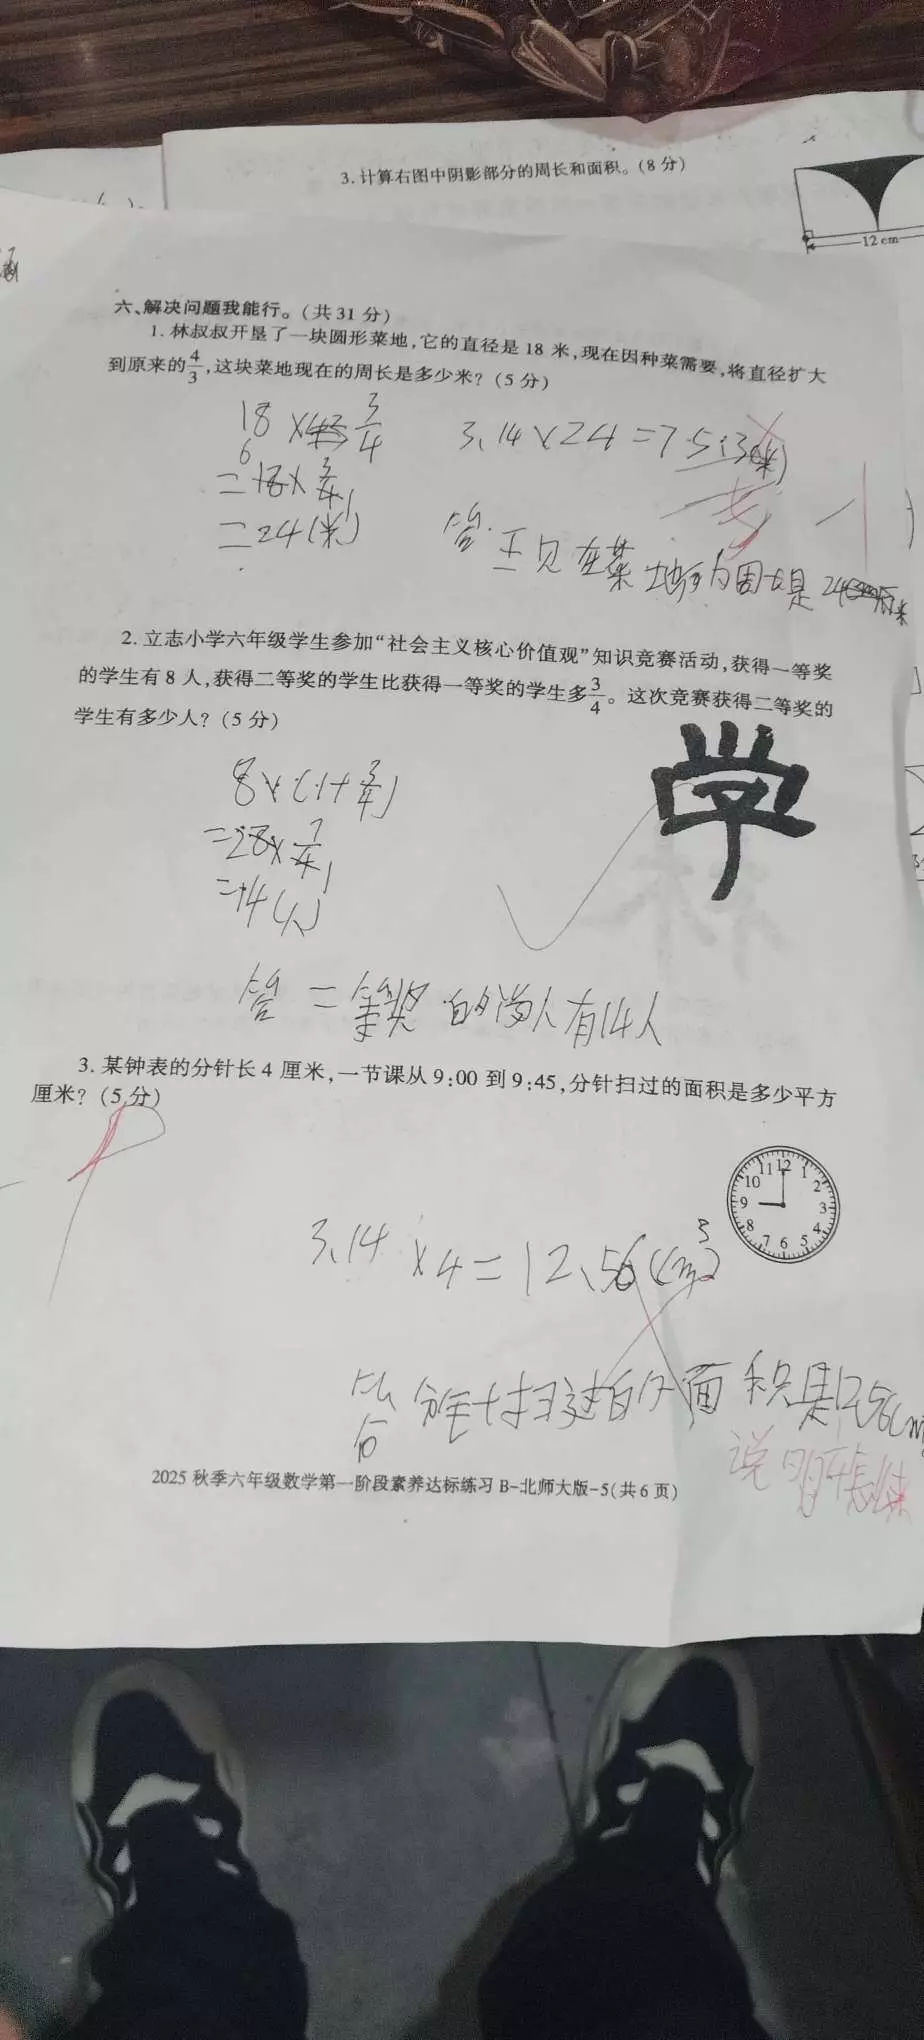 3.计算右图中阴影部分的周长和面积。(8 分)
12 cm
六、解决问题我能行。(共 31 分)
1. 林叔叔开垦了一块圆形菜地,它的直径是 18 米,现在因种菜需要,将直径扩大
到原来的4/3,这块菜地现在的周长是多少米? (5 分)
18 × 3/4
3.14×24=75.36(米)
=24(米)
2. 立志小学六年级学生参加“社会主义核心价值观”知识竞赛活动,获得一等奖
的学生有 8 人,获得二等奖的学生比获得一等奖的学生多3/4。这次竞赛获得二等奖的
学生有多少人? (5 分)
8×(1+3/4)
学
=14(人)
答 二等奖的 人有14人
3. 某钟表的分针长 4 厘米,一节课从 9:00 到 9:45,分针扫过的面积是多少平方
厘米? (5 分)
11 12 1
10 2
9 3
8 4
7 6 5
3.14×4=12.56(cm
答 分针扫过的面积是12.56cm
说明
2025 秋季六年级数学第一阶段素养达标练习 B-北师大版-5(共 6 页)